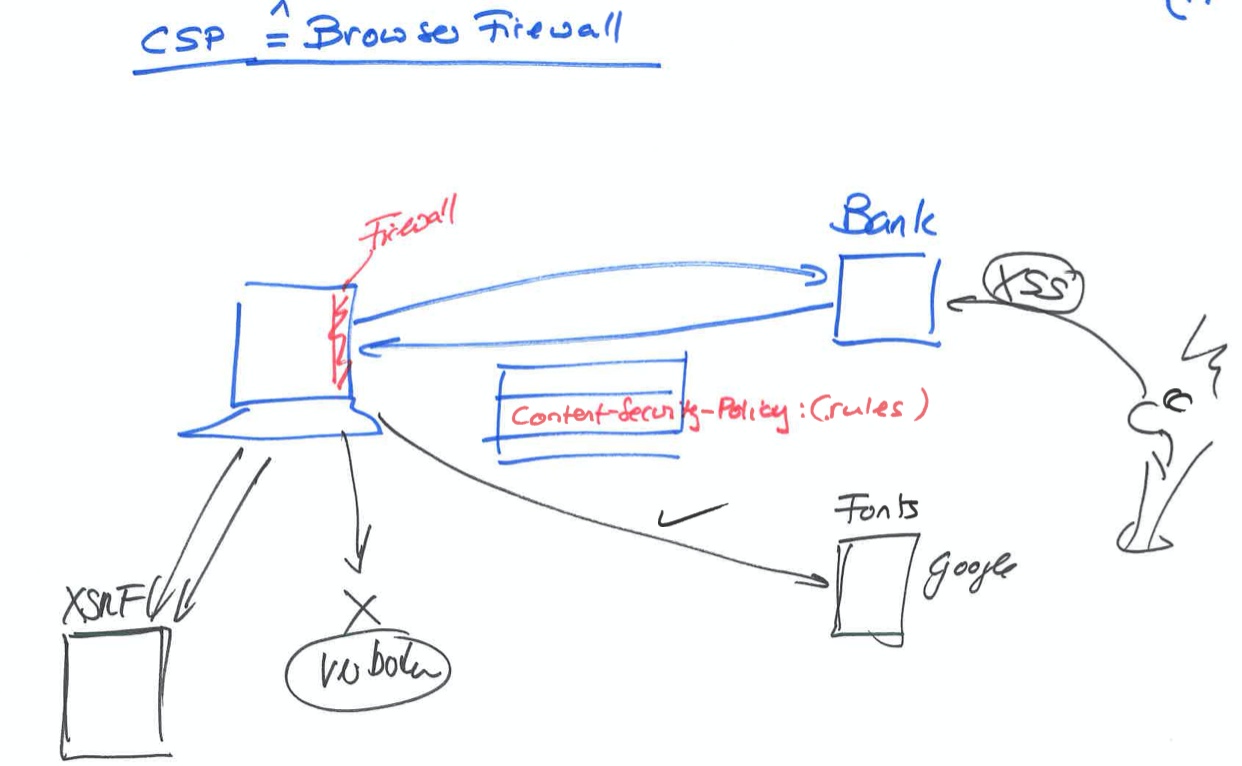 CSP ≙ Browser Firewall
Firewall
Bank
XSS
Content-Security-Policy: (rules)
Fonts
Google
XSRF
X
verboten